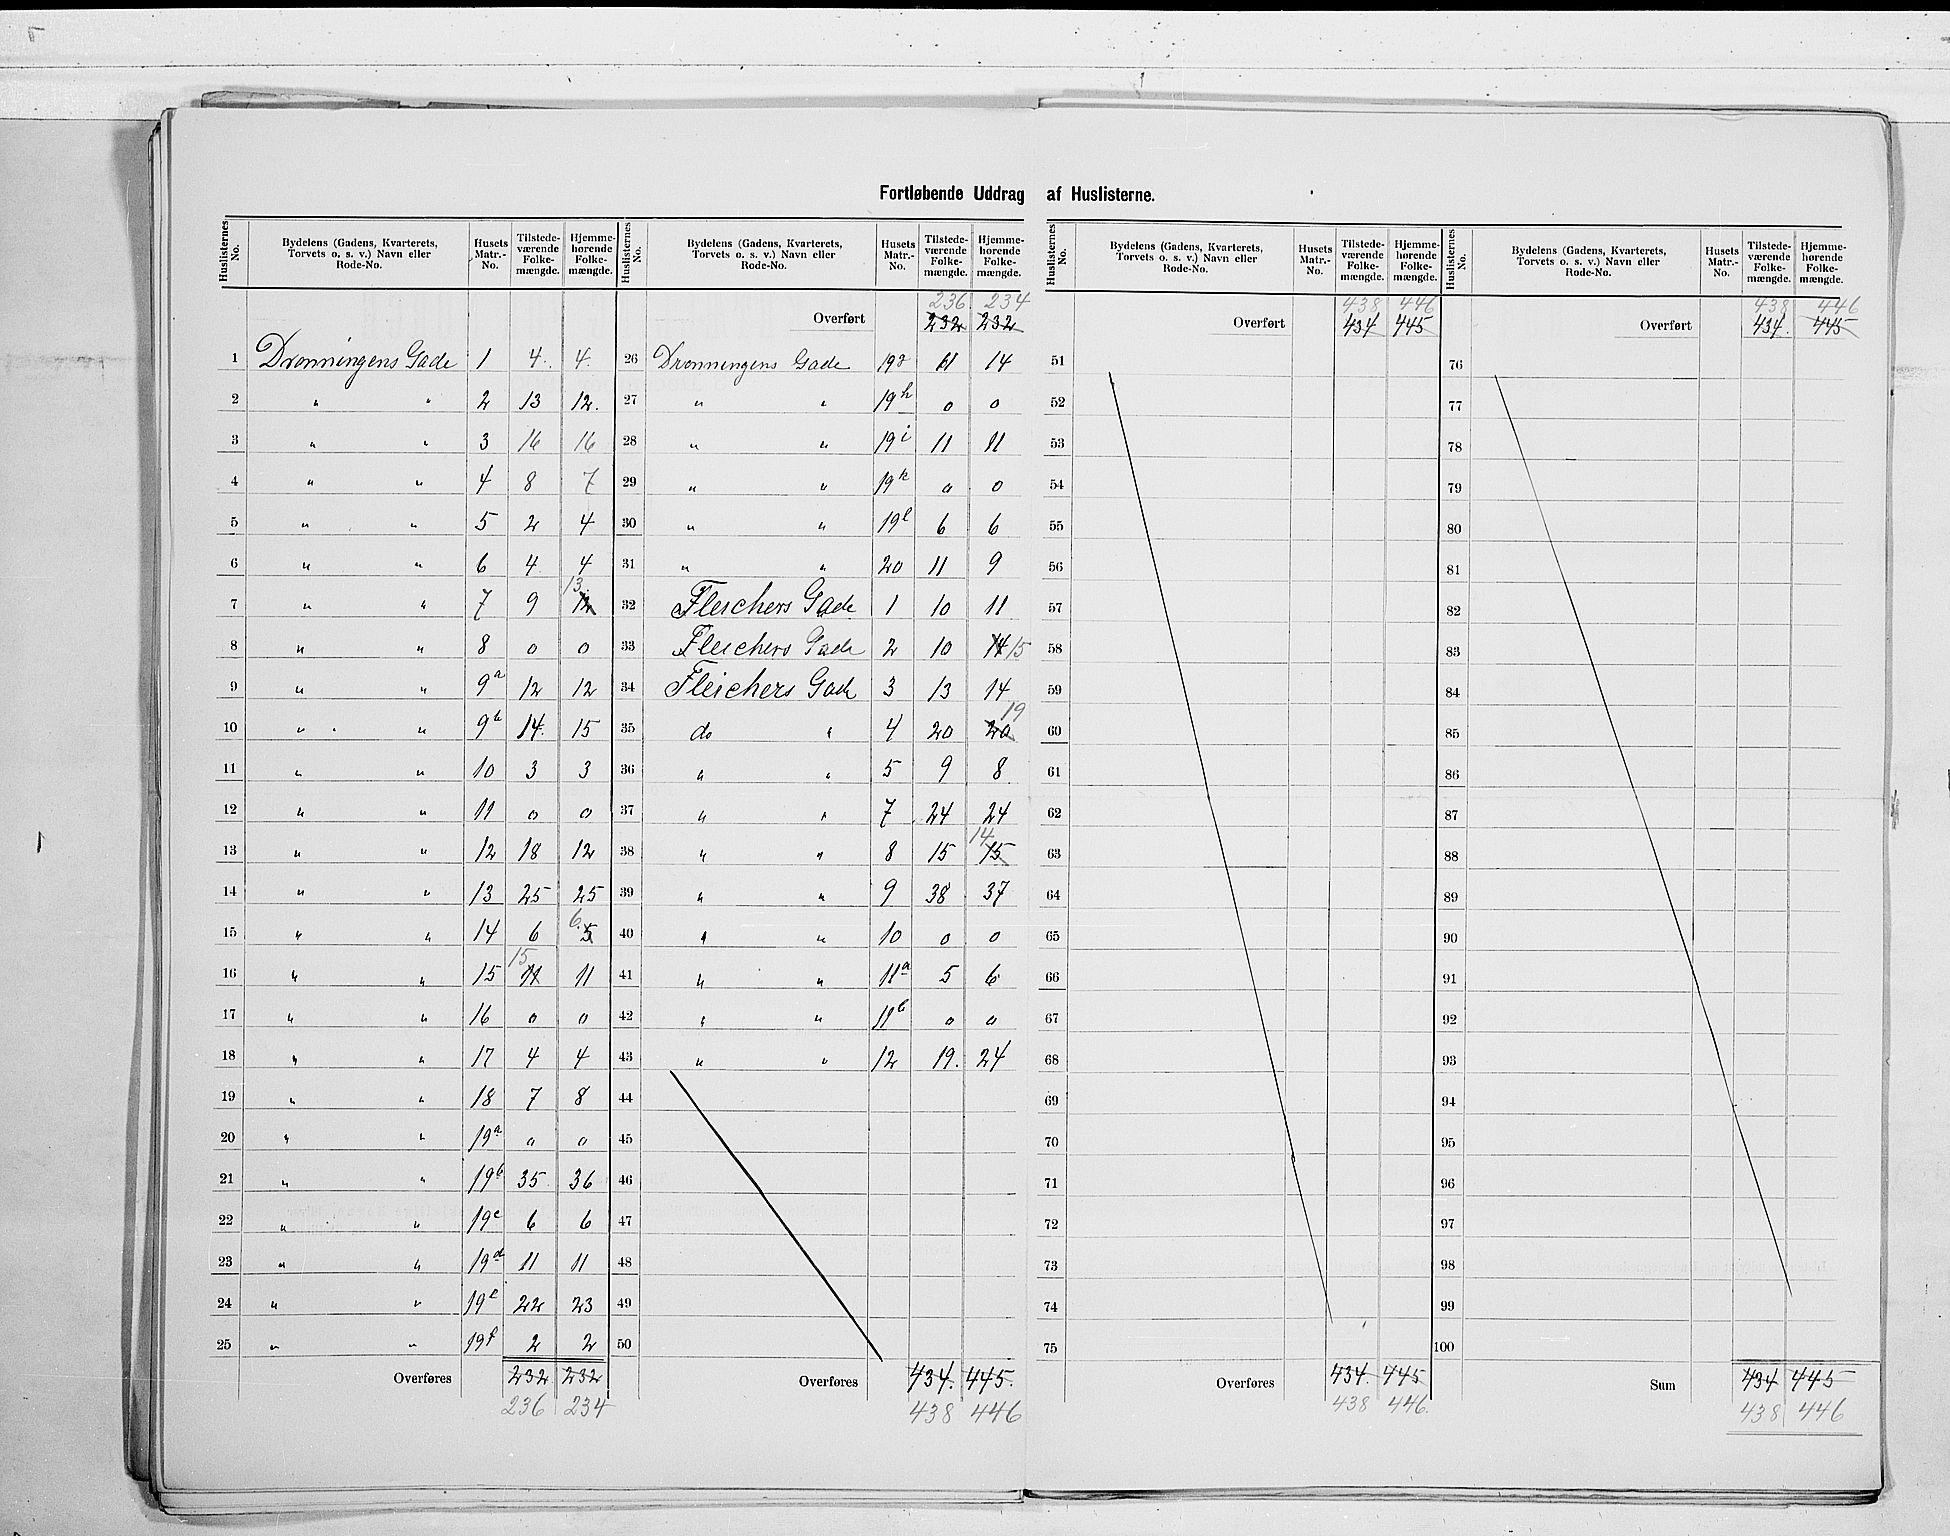 Fortløbende Uddrag af Huslisterne.
Huslisternes No. Bydelens (Gadens, Kvarterets, Torvets o. s. v.) Navn eller Rode-No. Husets Matr.-No. Tilstede-værende Folke-mængde. Hjemme-hørende Folke-mængde.
1 Dronningens Gade 1 4. 4.
2 " " 2 13 12.
3 " " 3 16 16
4 " " 4 8 7
5 " " 5 2 4
6 " " 6 4 4
7 " " 7 9 12 13.
8 " " 8 0 0
9 " " 9a 12 12
10 " " 9b 14. 15
11 " " 10 3 3
12 " " 11 0 0
13 " " 12 18 12
14 " " 13 25 25
15 " " 14 6 5 6.
16 " " 15 11 15 11
17 " " 16 0 0
18 " " 17 4 4
19 " " 18 7 8
20 " " 19a 0 0
21 " " 19b 35 36
22 " " 19c 6 6
23 " " 19d 11 11
24 " " 19e 22 23
25 " " 19f 2 2
Overføres 232 232
236 234
Huslisternes No. Bydelens (Gadens, Kvarterets, Torvets o. s. v.) Navn eller Rode-No. Husets Matr.-No. Tilstede-værende Folke-mængde. Hjemme-hørende Folke-mængde.
236 234
Overført 232 232
26 Dronningens Gade 19g 11 14
27 " " 19h 0 0
28 " " 19i 11 11
29 " " 19k 0 0
30 " " 19l 6 6
31 " " 20 11 9
32 Fleichers Gade 1 10 11
33 Fleichers Gade 2 10 14 15
34 Fleichers Gade 3 13 14
35 do " 4 20 20 19
36 " " 5 9 8
37 " " 7 24 24
38 " " 8 15 15 14
39 " " 9 38 37
40 " " 10 0 0
41 " " 11a 5 6
42 " " 11b 0 0
43 " " 12 19. 24
44
45
46
47
48
49
50
Overføres 434. 445.
438 446
Huslisternes No. Bydelens (Gadens, Kvarterets, Torvets o. s. v.) Navn eller Rode-No. Husets Matr.-No. Tilstede-værende Folke-mængde. Hjemme-hørende Folke-mængde.
438 446
Overført 434 445
51
52
53
54
55
56
57
58
59
60
61
62
63
64
65
66
67
68
69
70
71
72
73
74
75
Overføres 434. 445
438 446.
Huslisternes No. Bydelens (Gadens, Kvarterets, Torvets o. s. v.) Navn eller Rode-No. Husets Matr.-No. Tilstede-værende Folke-mængde. Hjemme-hørende Folke-mængde.
438 446
Overført 434. 445
76
77
78
79
80
81
82
83
84
85
86
87
88
89
90
91
92
93
94
95
96
97
98
99
100
Sum 434 445
438 446